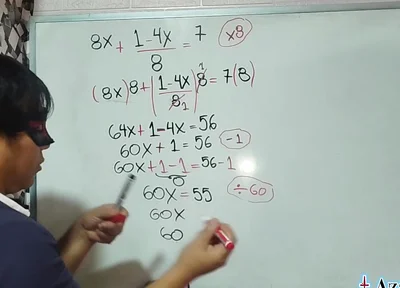 8x + 1-4x/8 = 7 ×8
(8x)8 + (1-4x/8 1)8 1 = 7(8)
64x+1-4x=56
60x+1=56 -1
60x+1-1=56-1
0
60x=55 ÷60
60x
60